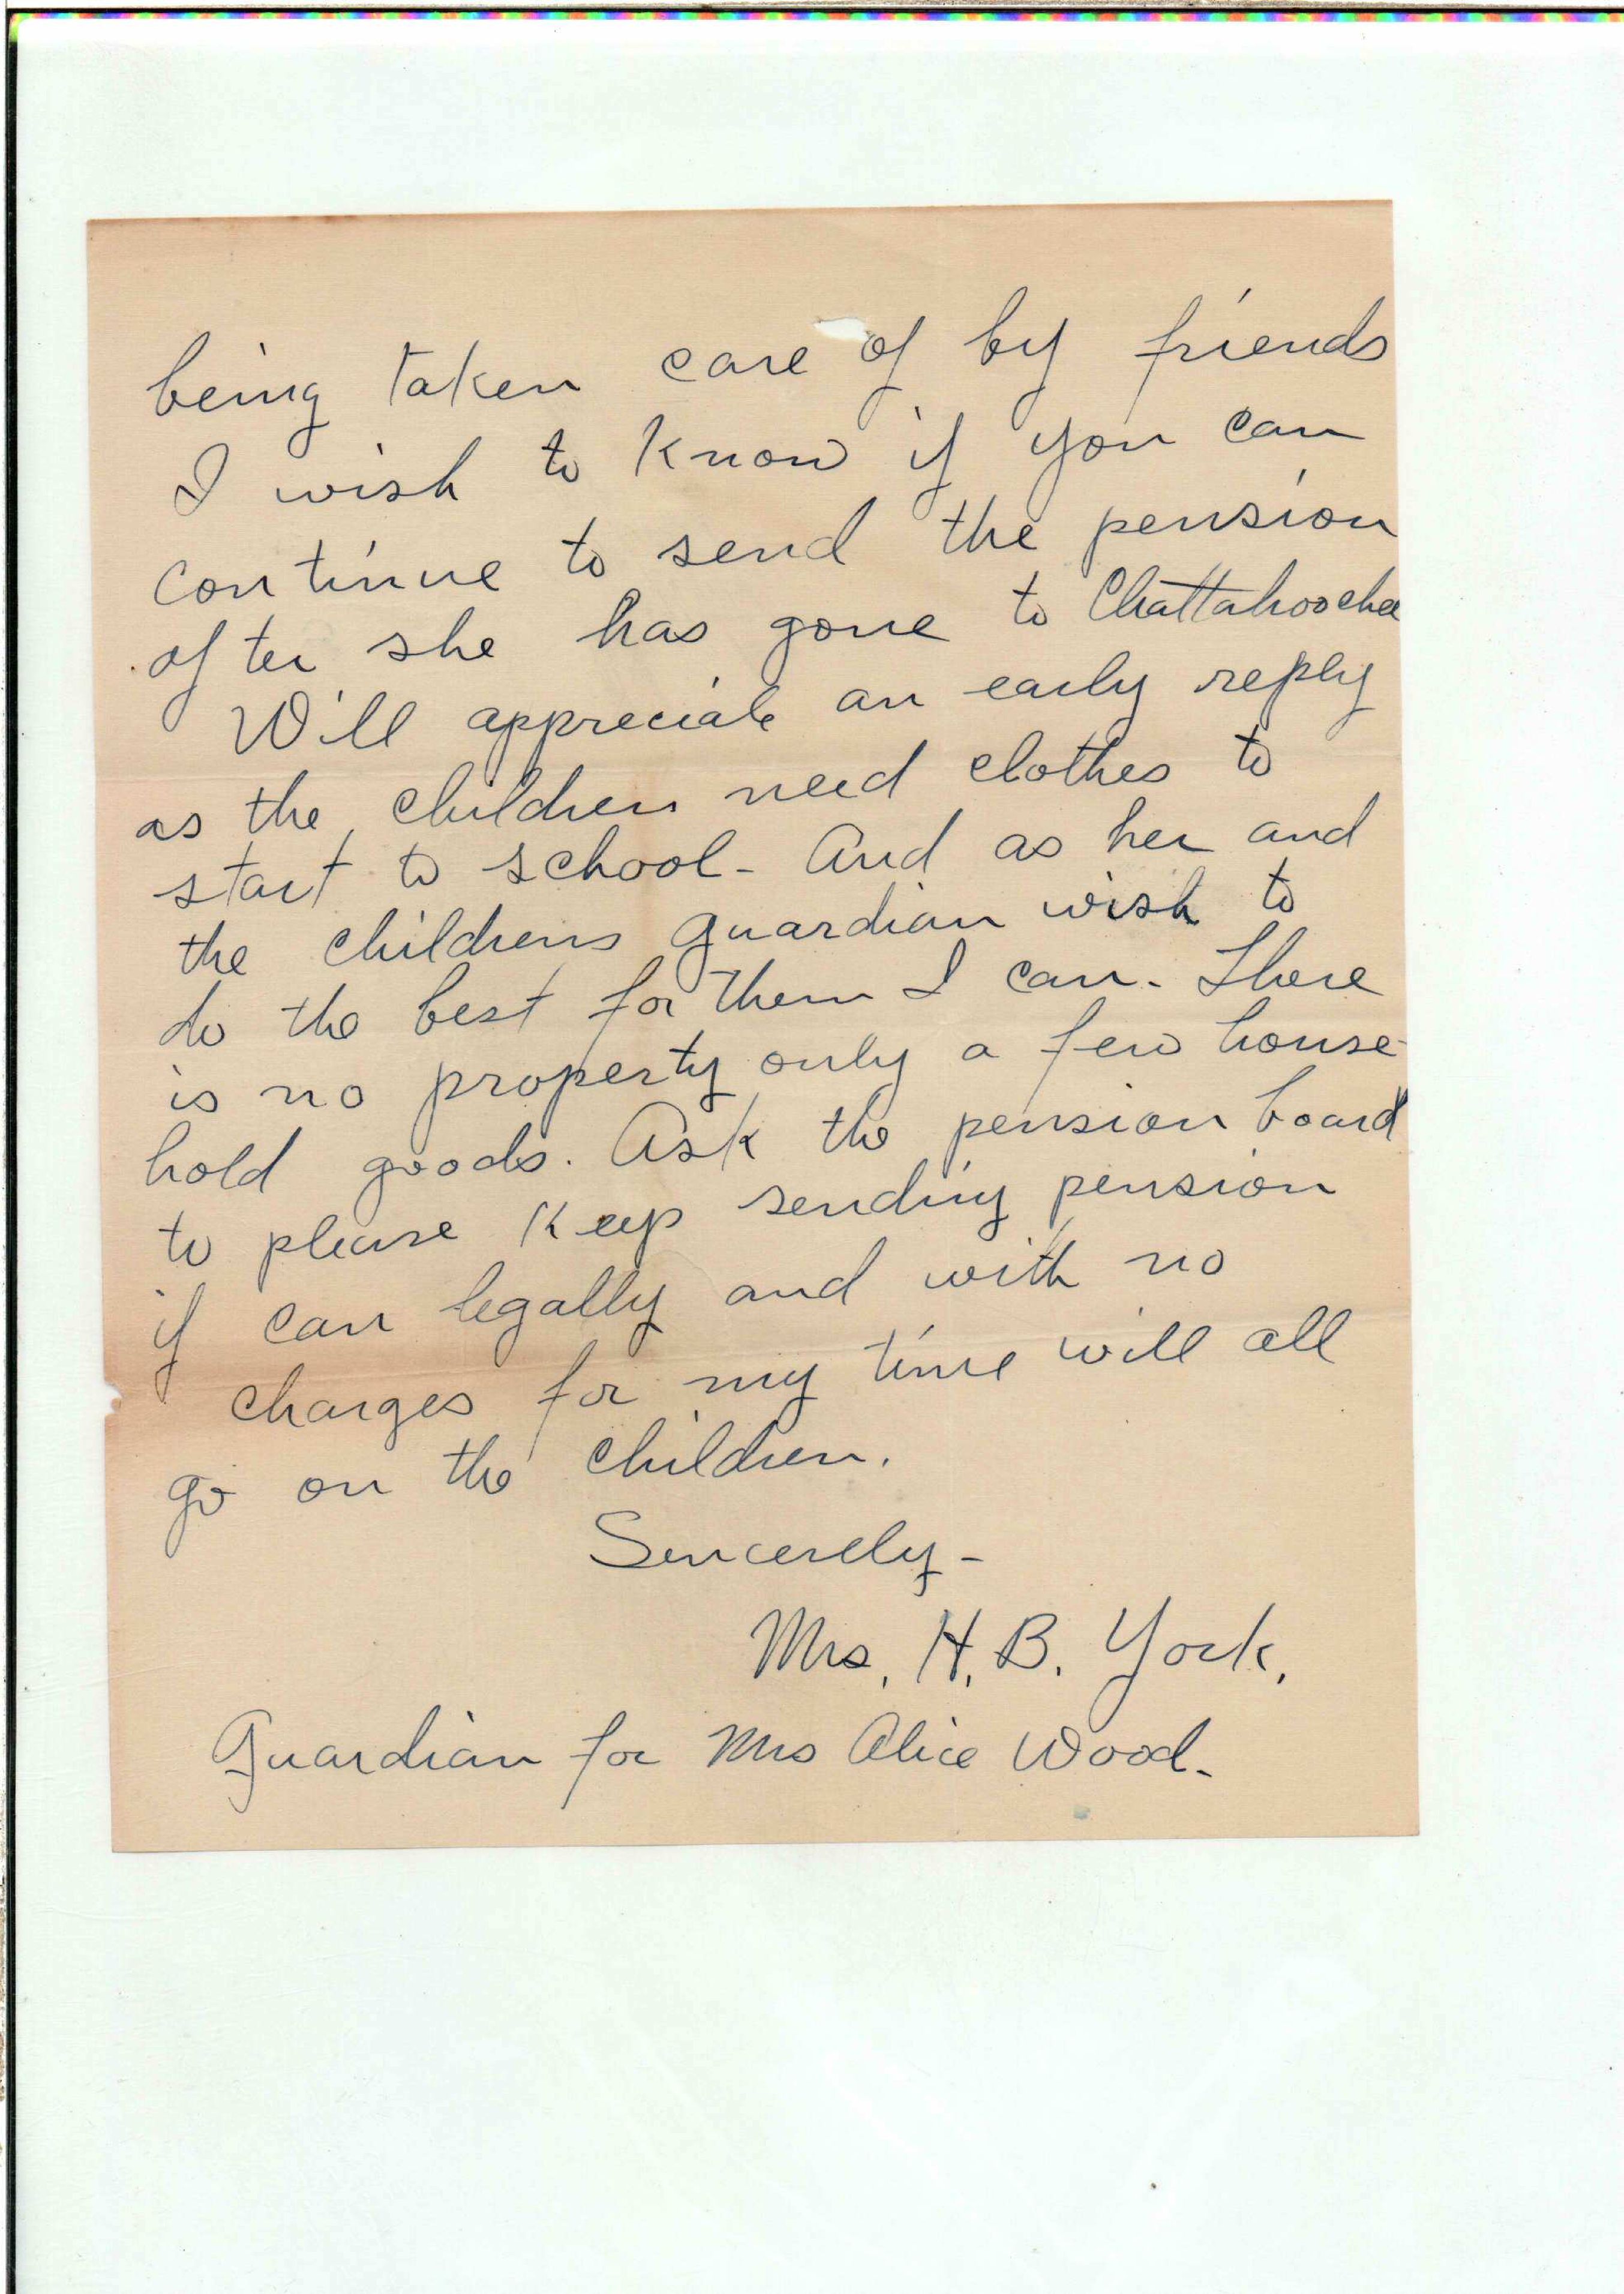 being taken care of by friends
I wish to know if you can
continue to send the pension
after she has gone to Chattahoochee
Will appreciate an early reply
as the children need clothes to
start to school - And as her and
the childrens guardian wish to
do the best for them I can - There
is no property only a few house-
hold goods. Ask the pension board
to please keep sending pension
if can legally and with no
charges for my time will all
go on the children.
Sincerely -
Mrs. H. B. York.
Guardian for Mrs Alice Wood -